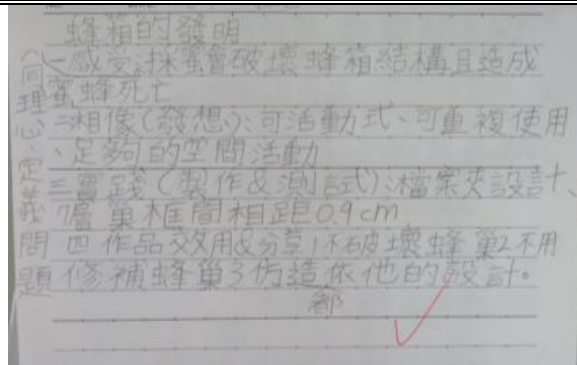 蜂箱的發明
一感受:採蜜會破壞蜂箱結構且造成
蜜蜂死亡
二相像(發想):可活動式、可重複使用
、足夠的空間活動
三實踐(製作&測試):檔案夾設計、
層巢框間相距0.9cm
四作品效用&分享1不破壞蜂巢2不用
修補蜂巢3仿造依他的設計。
都
(同理心、定義問題